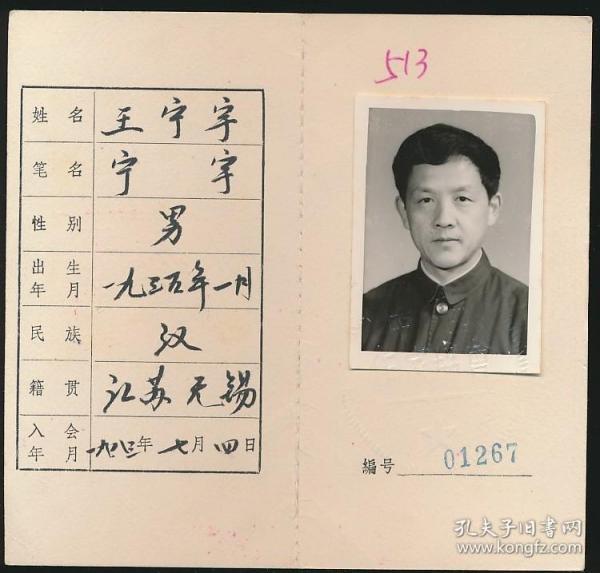 姓名 王宁宇
笔名 宁宇
性别 男
出生年月 一九三五年一月
民族 汉
籍贯 江苏无锡
入会年月 一九八三年七月四日
513
編号 01267
孔夫子旧书网
www.kongfz.com